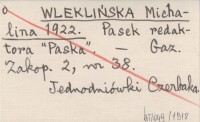 WLEKLIŃSKA Micha-
lina 1922. Pasek redak-
tora "Paska". — Gaz.
Zakop. 2, nr 38.
Jednodniówki Czerbaka